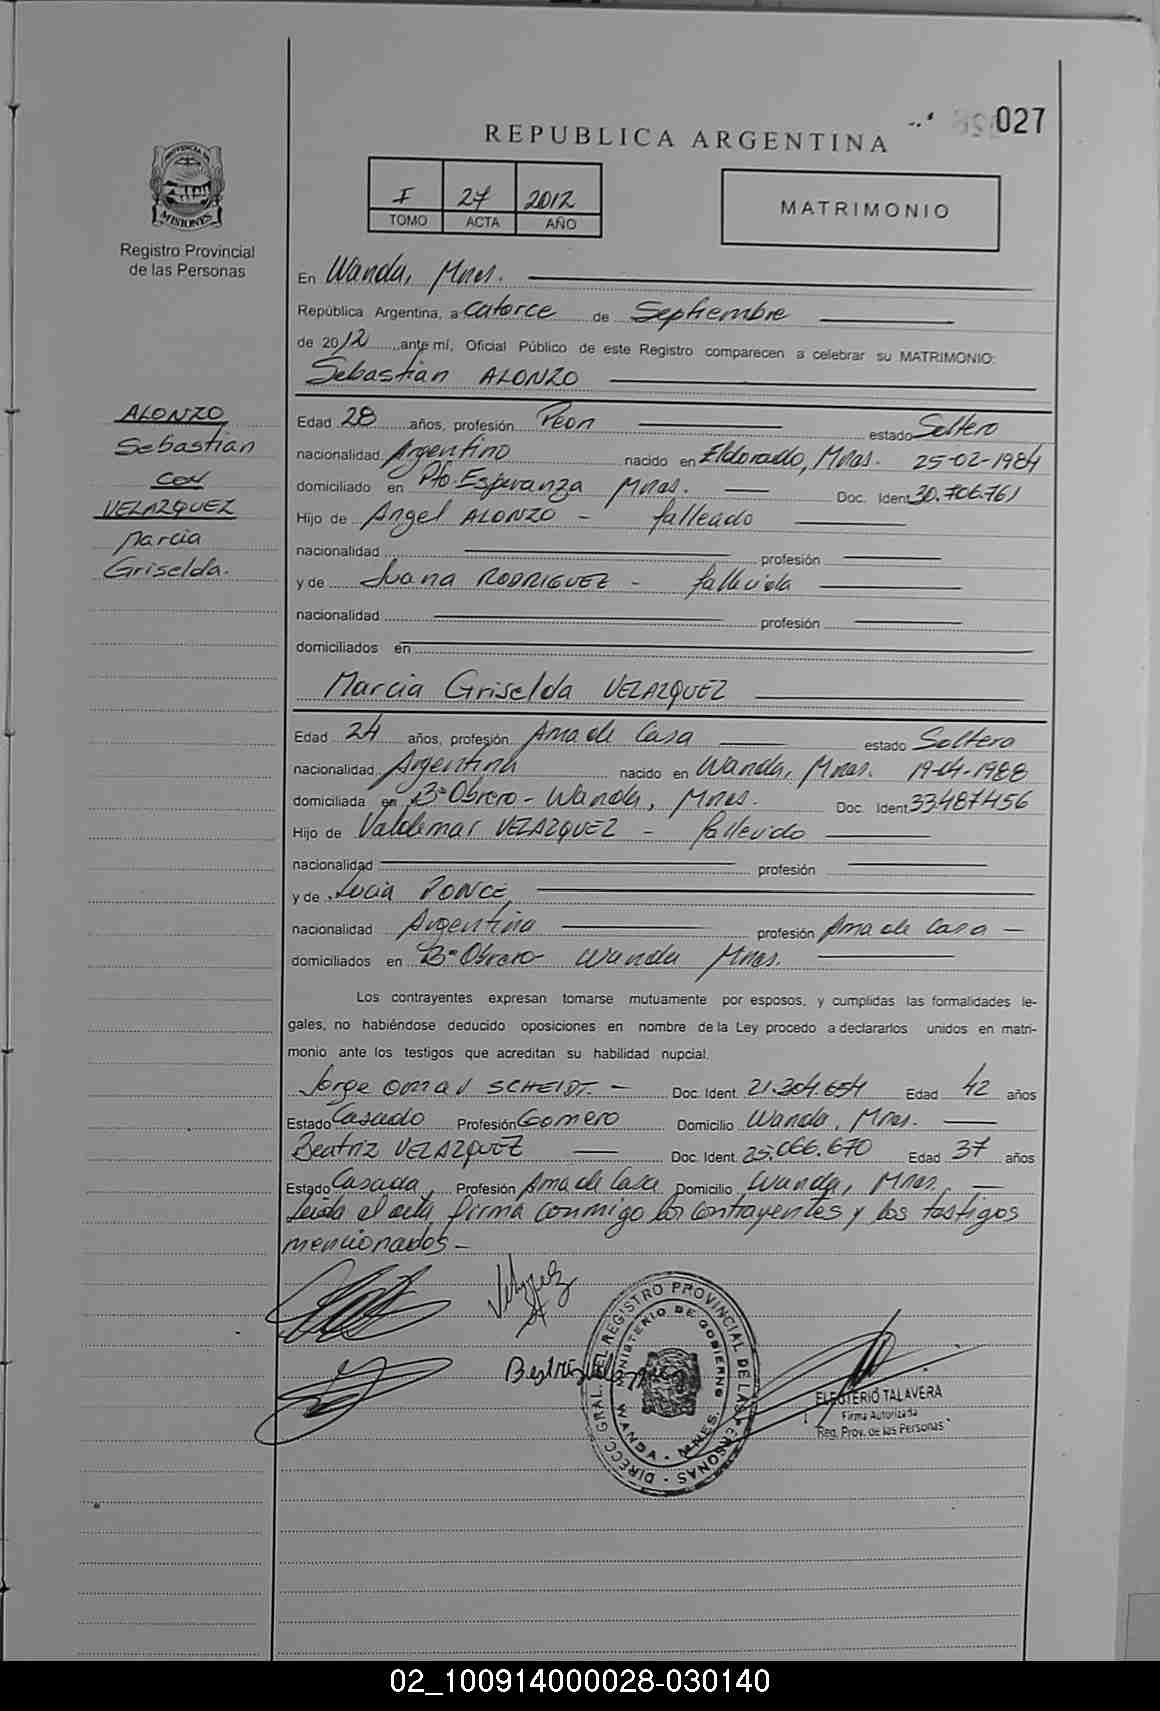 027
REPUBLICA ARGENTINA
PROVINCIA DE
MISIONES
Registro Provincial
de las Personas
I 27 2012
TOMO ACTA AÑO
MATRIMONIO
En Wanda, Mnes.
República Argentina, a catorce de Septiembre
de 2012 ante mí, Oficial Público de este Registro comparecen a celebrar su MATRIMONIO:
Sebastián ALONZO
ALONZO
Sebastian
con
VELAZQUEZ
Marcia
Griselda.
Edad 28 años, profesión Peon estado Soltero
nacionalidad Argentino nacido en Eldorado, Mnes. 25-02-1984
domiciliado en Pto. Esperanza Mnes. Doc. Ident 30.706.761
Hijo de Angel ALONZO - fallecido
nacionalidad profesión
y de Juana RODRIGUEZ - fallecida
nacionalidad profesión
domiciliados en
Marcia Griselda VELAZQUEZ
Edad 24 años, profesión Ama de Casa estado Soltera
nacionalidad Argentina nacido en Wanda, Mnes. 19-04-1988
domiciliada en B° Obrero - Wanda, Mnes. Doc. Ident 33.487.456
Hijo de Valdemar VELAZQUEZ - fallecido
nacionalidad profesión
y de Lucia PONCE
nacionalidad Argentina profesión Ama de Casa -
domiciliados en B° Obrero- Wanda Mnes.
Los contrayentes expresan tomarse mutuamente por esposos, y cumplidas las formalidades le-
gales, no habiéndose deducido oposiciones en nombre de la Ley procedo a declararlos unidos en matri-
monio ante los testigos que acreditan su habilidad nupcial.
Jorge Omar SCHEIDT. - Doc. Ident. 21.304.654 Edad 42 años
Estado Casado Profesión Gomero Domicilio Wanda, Mnes.
Beatriz VELAZQUEZ Doc. Ident. 25.066.670 Edad 37 años
Estado Casada Profesión Ama de Casa Domicilio Wanda, Mnes.
Leida el acta, firma conmigo los contrayentes y los testigos
mencionados -
Velazquez
Beatriz Velazquez
DIRECC. GRAL. DEL REGISTRO PROVINCIAL DE LAS PERSONAS
MINISTERIO DE GOBIERNO
WANDA - MNES.
ELEUTERIO TALAVERA
Firma Autorizada
Reg. Prov. de las Personas
02_100914000028-030140